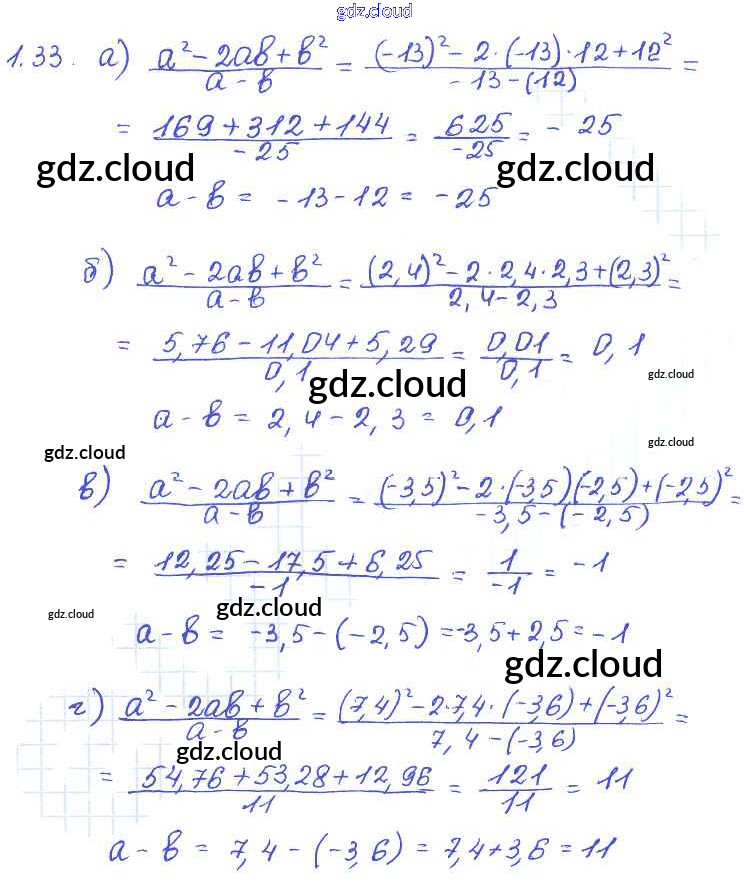 gdz.cloud
1.33. а) (a² - 2ab + b²)/(a - b) = ((-13)² - 2·(-13)·12 + 12²)/(-13 - (12)) =
= (169 + 312 + 144)/(-25) = 625/(-25) = - 25
gdz.cloud gdz.cloud
a - b = -13 - 12 = -25
б) (a² - 2ab + b²)/(a - b) = ((2,4)² - 2·2,4·2,3 + (2,3)²)/(2,4 - 2,3) =
= (5,76 - 11,04 + 5,29)/(0,1) = 0,01/0,1 = 0,1
gdz.cloud gdz.cloud
a - b = 2,4 - 2,3 = 0,1
gdz.cloud gdz.cloud
в) (a² - 2ab + b²)/(a - b) = ((-3,5)² - 2·(-3,5)(-2,5) + (-2,5)²)/(-3,5 - (-2,5)) =
= (12,25 - 17,5 + 6,25)/(-1) = 1/(-1) = -1
gdz.cloud gdz.cloud
a - b = -3,5 - (-2,5) = -3,5 + 2,5 = -1
gdz.cloud
г) (a² - 2ab + b²)/(a - b) = ((7,4)² - 2·7,4·(-3,6) + (-3,6)²)/(7,4 - (-3,6)) =
gdz.cloud
= (54,76 + 53,28 + 12,96)/11 = 121/11 = 11
a - b = 7,4 - (-3,6) = 7,4 + 3,6 = 11